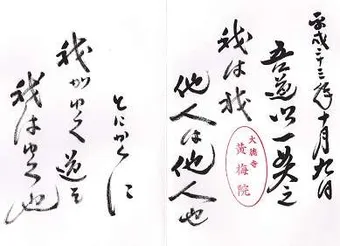 平成二十三年十月九日
吾道以一貫之
我は我
他人は他人也
大徳寺
黄梅院
とにかくに
我がゆく道を
我はゆく也